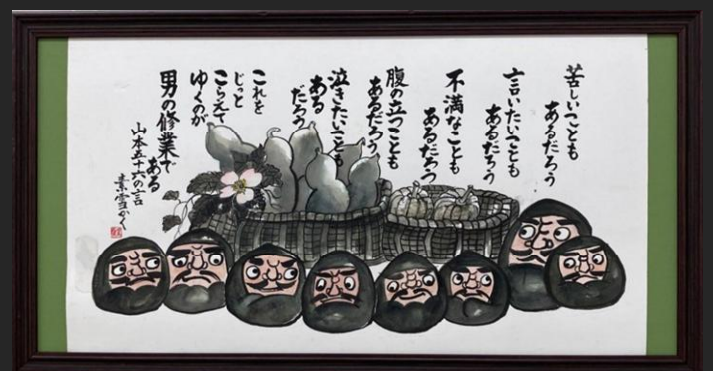 苦しいことも
あるだろう
言いたいことも
あるだろう
不満なことも
あるだろう
腹の立つことも
あるだろう
泣きたいことも
ある
だろう
これを
じっと
こらえて
ゆくのが
男の修業で
ある
山本五十六の言
素雪かく